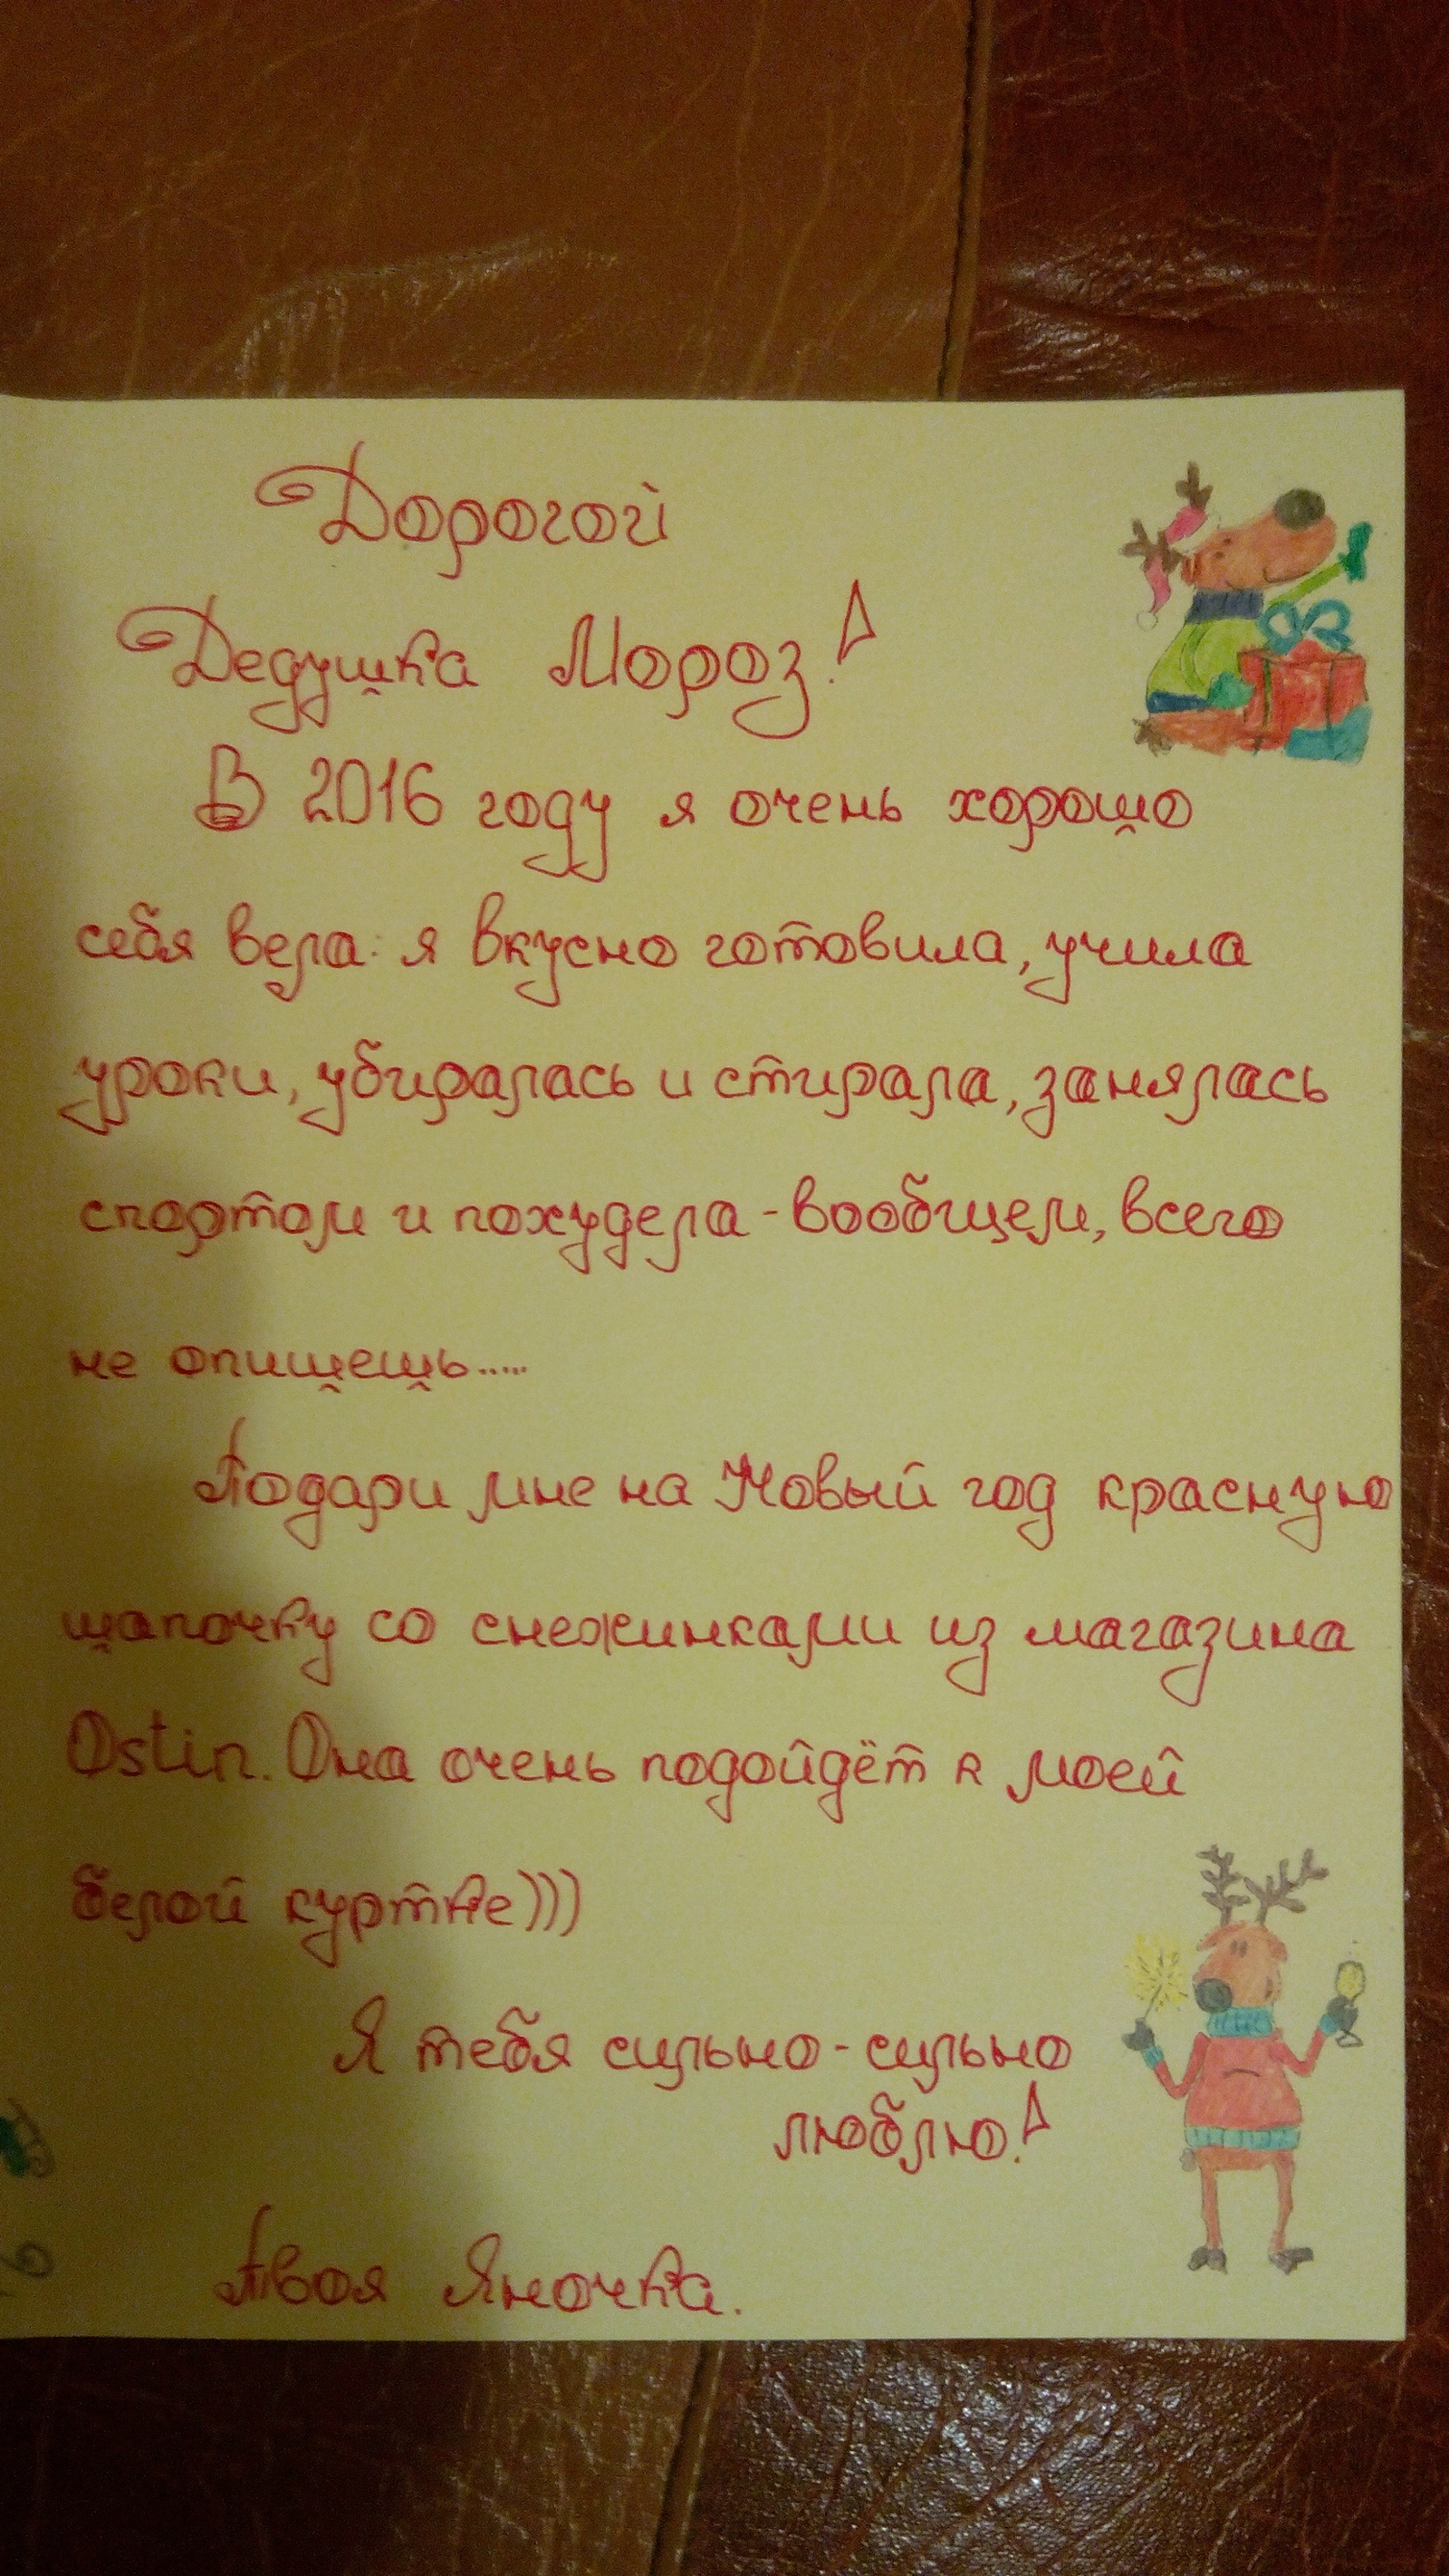 Дорогой
Дедушка Мороз!
В 2016 году я очень хорошо
себя вела: я вкусно готовила, учила
уроки, убиралась и стирала, занялась
спортом и похудела - вообщем, всего
не опишешь.....
Подари мне на Новый год красную
шапочку со снежинками из магазина
Ostin. Она очень подойдёт к моей
белой куртке)))
Я тебя сильно-сильно
люблю!
Твоя Яночка.